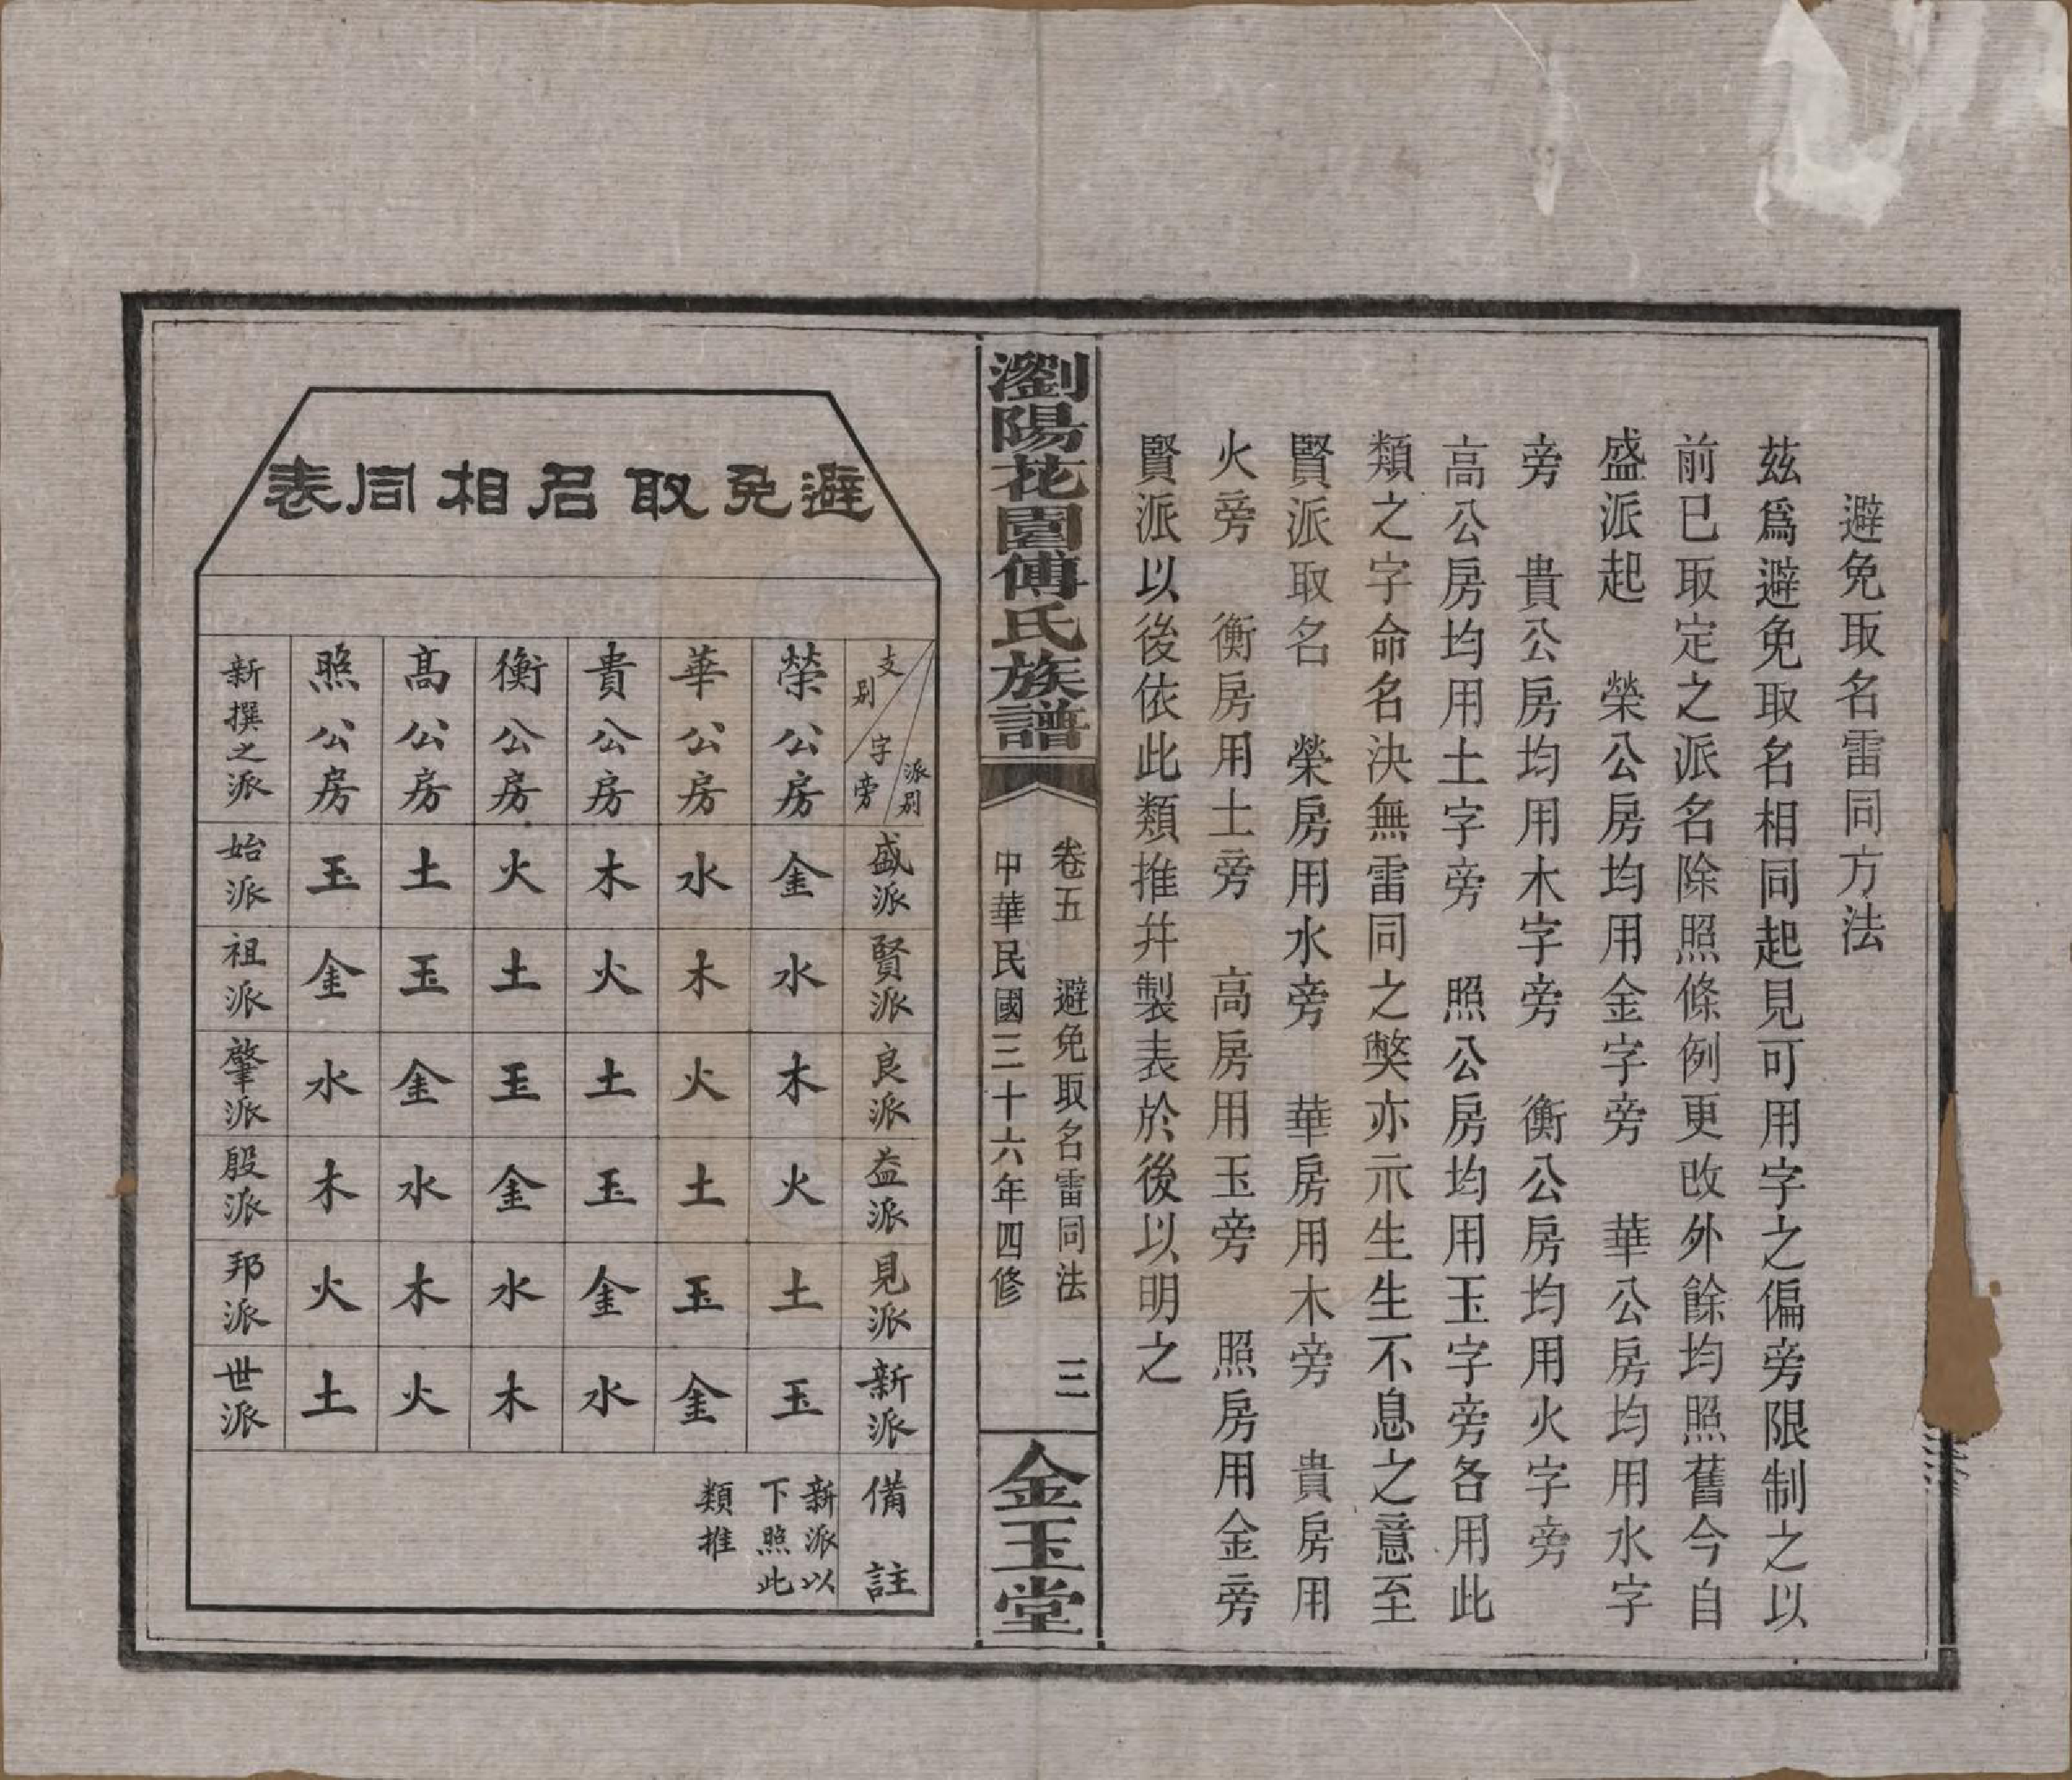 避免取名雷同方法
茲爲避免取名相同起見可用字之偏旁限制之以
前已取定之派名除照條例更改外餘均照舊今自
盛派起　榮公房均用金字旁　華公房均用水字
旁　貴公房均用木字旁　衡公房均用火字旁
高公房均用土字旁　照公房均用玉字旁各用此
類之字命名決無雷同之弊亦示生生不息之意至
賢派取名　榮房用水旁　華房用木旁　貴房用
火旁　衡房用土旁　高房用玉旁　照房用金旁
賢派以後依此類推幷製表於後以明之
瀏陽花園傅氏族譜
卷五　避免取名雷同法　三
中華民國三十六年四修
金玉堂
避免取名相同表
支別　字旁　派別　盛派　賢派　良派　益派　見派　新派　備註
榮公房　金　水　木　火　土　玉　新派以下照此類推
華公房　水　木　火　土　玉　金
貴公房　木　火　土　玉　金　水
衡公房　火　土　玉　金　水　木
高公房　土　玉　金　水　木　火
照公房　玉　金　水　木　火　土
新撰之派　始派　祖派　肇派　殷派　邦派　世派